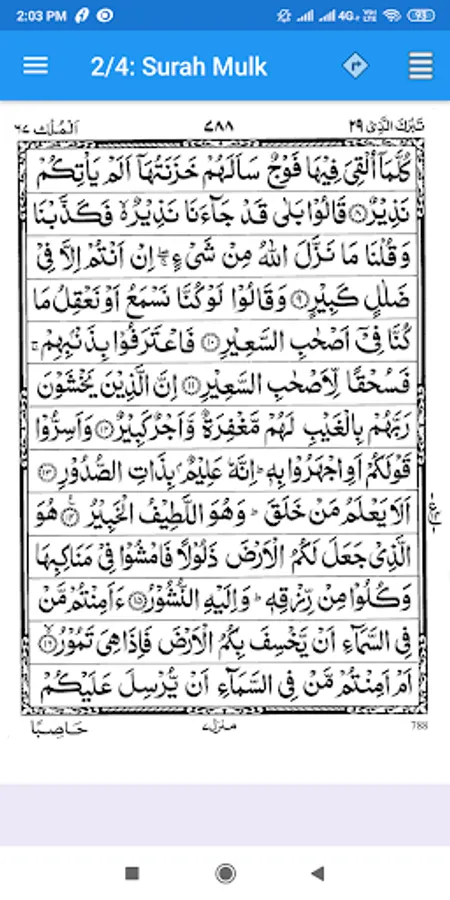 2:03 PM 4G+ VoLTE 93
2/4: Surah Mulk
تَبٰرَكَ الَّذِیْ ۲۹ ۷۸۸ اَلْمُلْك ۶۷
كُلَّمَاۤ اُلْقِیَ فِیْهَا فَوْجٌ سَاَلَهُمْ خَزَنَتُهَاۤ اَلَمْ یَاْتِكُمْ
نَذِیْرٌ۝۸ قَالُوْا بَلٰی قَدْ جَآءَنَا نَذِیْرٌ ۬ۙ فَكَذَّبْنَا
وَ قُلْنَا مَا نَزَّلَ اللّٰهُ مِنْ شَیْءٍ ۖۚ اِنْ اَنْتُمْ اِلَّا فِیْ
ضَلٰلٍ كَبِیْرٍ۝۹ وَ قَالُوْا لَوْ كُنَّا نَسْمَعُ اَوْ نَعْقِلُ مَا
كُنَّا فِیْۤ اَصْحٰبِ السَّعِیْرِ۝۱۰ فَاعْتَرَفُوْا بِذَنْۢبِهِمْ ۚ
فَسُحْقًا لِّاَصْحٰبِ السَّعِیْرِ۝۱۱ اِنَّ الَّذِیْنَ یَخْشَوْنَ
رَبَّهُمْ بِالْغَیْبِ لَهُمْ مَّغْفِرَةٌ وَّ اَجْرٌ كَبِیْرٌ۝۱۲ وَ اَسِرُّوْا
قَوْلَكُمْ اَوِ اجْهَرُوْا بِهٖ ؕ اِنَّهٗ عَلِیْمٌۢ بِذَاتِ الصُّدُوْرِ۝۱۳
اَلَا یَعْلَمُ مَنْ خَلَقَ ؕ وَ هُوَ اللَّطِیْفُ الْخَبِیْرُ۝۱۴ هُوَ
الَّذِیْ جَعَلَ لَكُمُ الْاَرْضَ ذَلُوْلًا فَامْشُوْا فِیْ مَنَاكِبِهَا
وَ كُلُوْا مِنْ رِّزْقِهٖ ؕ وَ اِلَیْهِ النُّشُوْرُ۝۱۵ ءَاَمِنْتُمْ مَّنْ
فِی السَّمَآءِ اَنْ یَّخْسِفَ بِكُمُ الْاَرْضَ فَاِذَا هِیَ تَمُوْرُ۝۱۶
اَمْ اَمِنْتُمْ مَّنْ فِی السَّمَآءِ اَنْ یُّرْسِلَ عَلَیْكُمْ
حَاصِبًا منزل۷ 788